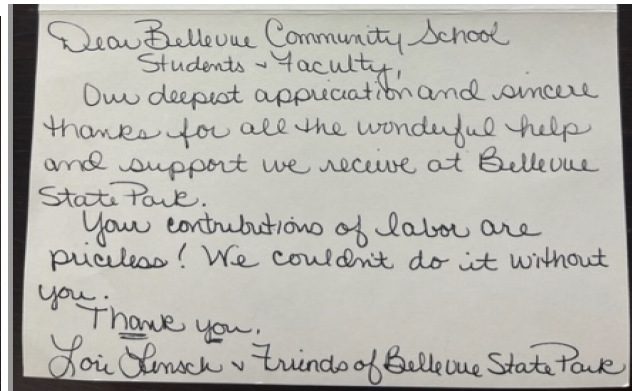 Dear Bellevue Community School
Students & Faculty,
Our deepest appreciation and sincere
thanks for all the wonderful help
and support we receive at Bellevue
State Park.
Your contributions of labor are
priceless! We couldn't do it without
you.
Thank you.
Lori Lensch & Friends of Bellevue State Park